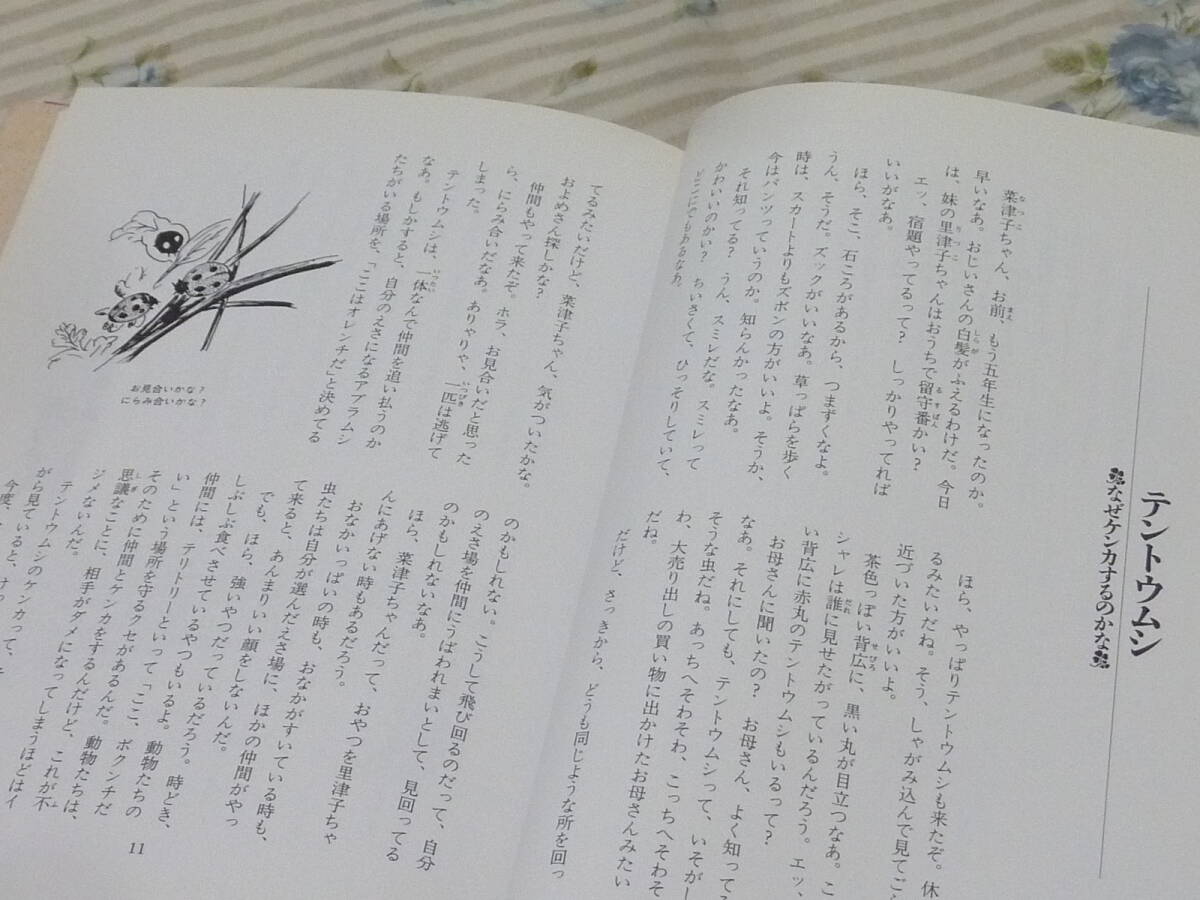 テントウムシ
なぜケンカするのかな
菜津子ちゃん、お前、もう五年生になったのか。
早いなあ。おじいさんの白髪がふえるわけだ。今日
は、妹の里津子ちゃんはおうちで留守番かい？
エッ、宿題やってるって？ しっかりやってれば
いいがなあ。
ほら、そこ、石ころがあるから、つまずくなよ。
うん、そうだ。ズックがいいなあ。草っぱらを歩く
時は、スカートよりもズボンの方がいいよ。そうか、
今はパンツっていうのか。知らんかったなあ。
それ知ってる？ うん、スミレだな。スミレって
かわいいのかい？ ちいさくて、ひっそりしていて、
どこにでもあるなあ。
ほら、やっぱりテントウムシも来たぞ。休
るみたいだね。そう、しゃがみ込んで見てご
近づいた方がいいよ。
茶色っぽい背広に、黒い丸が目立つなあ。こ
シャレは誰に見せたがっているんだろう。エッ、
い背広に赤丸のテントウムシもいるって？
お母さんに聞いたの？ お母さん、よく知って
なあ。それにしても、テントウムシって、いそがし
そうな虫だね。あっちへそわそわ、こっちへそわそ
わ、大売り出しの買い物に出かけたお母さんみたい
だね。
だけど、さっきから、どうも同じような所を回っ
てるみたいだけど、菜津子ちゃん、気がついたかな。
およめさん探しかな？
仲間もやって来たぞ。ホラ、お見合いだと思った
ら、にらみ合いだなあ。ありゃりゃ、一匹は逃げて
しまった。
テントウムシは、一体なんで仲間を追い払うのか
なあ。もしかすると、自分のえさになるアブラムシ
たちがいる場所を、「ここはオレンチだ」と決めてる
お見合いかな？
にらみ合いかな？
のかもしれない。こうして飛び回るのだって、自分
のえさ場を仲間にうばわれまいとして、見回ってる
のかもしれないなあ。
ほら、菜津子ちゃんだって、おやつを里津子ちゃ
んにあげない時もあるだろう。
おなかいっぱいの時も、おなかがすいている時も、
虫たちは自分が選んだえさ場に、ほかの仲間がやっ
て来ると、あんまりいい顔をしないんだ。
でも、ほら、強いやつだっているだろう。時どき、
しぶしぶ食べさせているやつもいるよ。動物たちの
仲間には、テリトリーといって「ここ、ボクンチだ
い」という場所を守るクセがあるんだ。動物たちは、
そのために仲間とケンカをするんだけど、これが不
思議なことに、相手がダメになってしまうほどはイ
ジメないんだ。
テントウムシのケンカって、
がら見ていると、
今度、
11